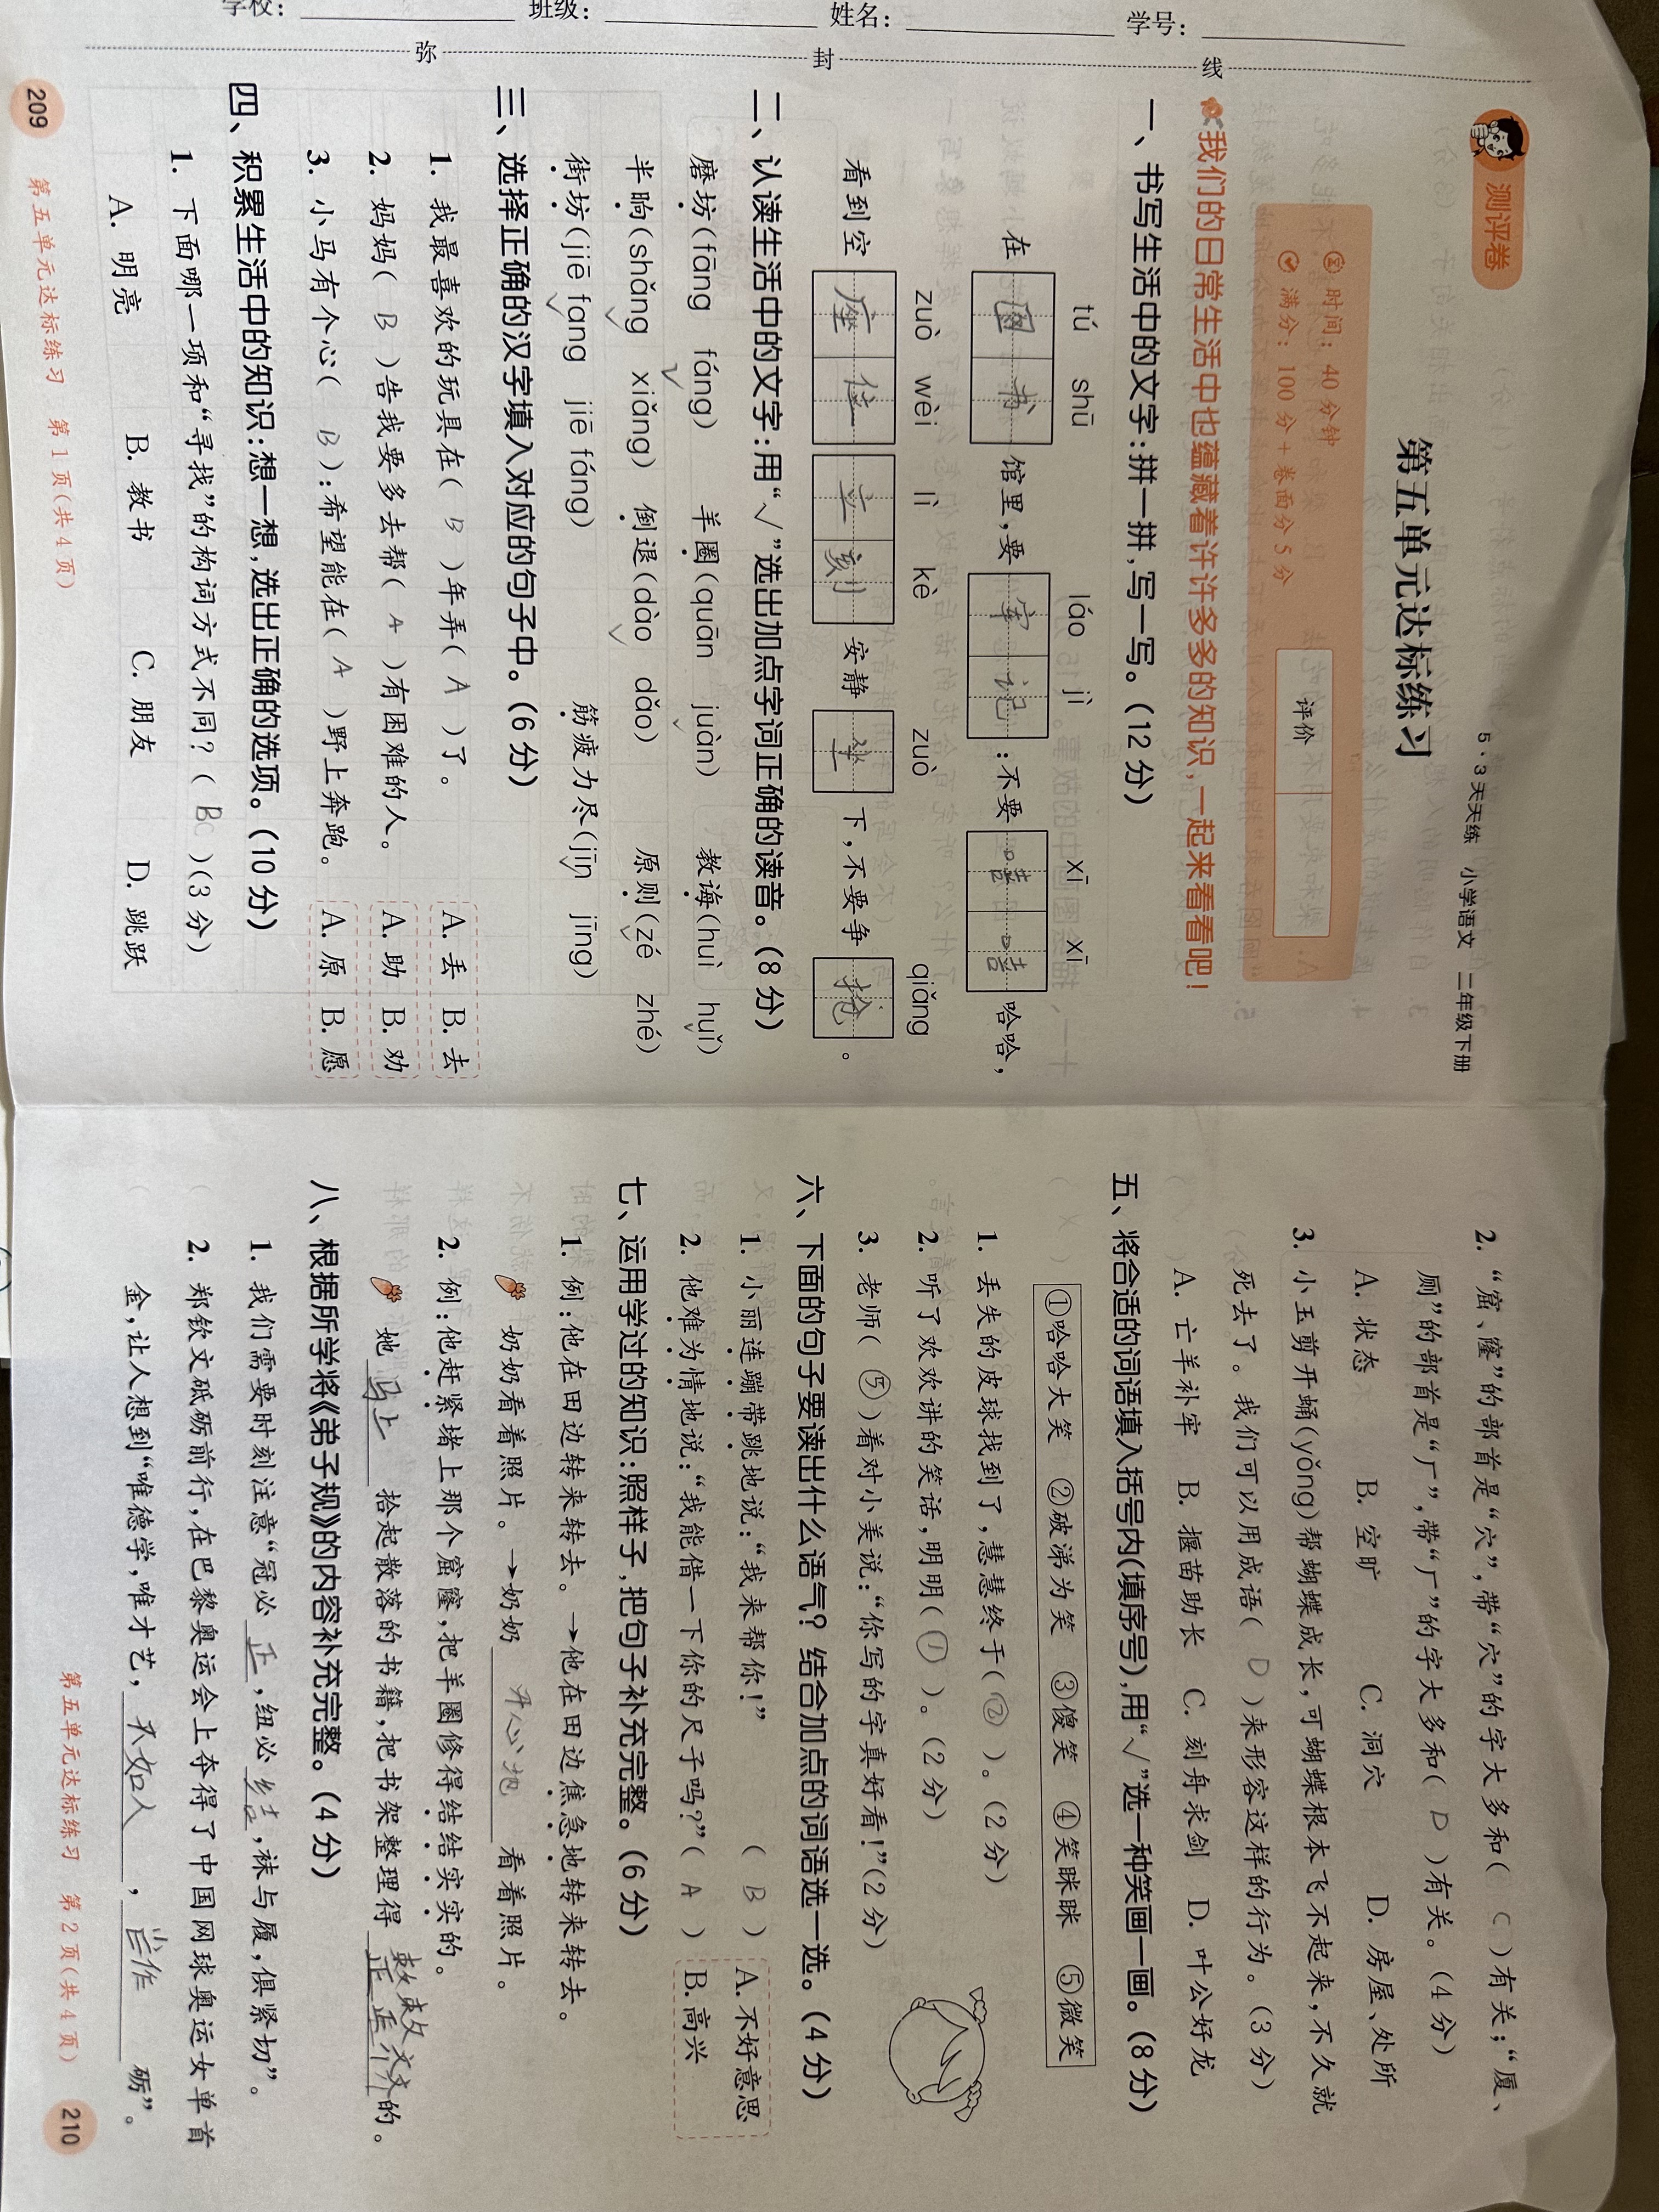 学校：
班级：
姓名：
学号：
弥
封
线
测评卷
5·3天天练 小学语文 二年级下册
第五单元达标练习
时间：40分钟
满分：100分+卷面分5分
评价
我们的日常生活中也蕴藏着许许多多的知识,一起来看看吧!
一、书写生活中的文字:拼一拼,写一写。(12分)
tú shū láo jì xī xī
在 图书 馆里,要 牢记 :不要 嘻嘻 哈哈,
zuò wèi lì kè zuò qiǎng
看到空 座位 立刻 安静 坐 下,不要争 抢 。
二、认读生活中的文字:用“√”选出加点字词正确的读音。(8分)
磨坊(fāng fáng√) 羊圈(quān juàn√) 教诲(huì huǐ√)
半晌(shǎng√ xiǎng) 倒退(dào√ dǎo) 原则(zé√ zhé)
街坊(jiē fang√ jiē fáng) 筋疲力尽(jīn√ jīng)
三、选择正确的汉字填入对应的句子中。(6分)
1. 我最喜欢的玩具在( B )年弄( A )了。 A. 丢 B. 去
2. 妈妈( B )告我要多去帮( A )有困难的人。 A. 助 B. 劝
3. 小马有个心( B ):希望能在( A )野上奔跑。 A. 原 B. 愿
四、积累生活中的知识:想一想,选出正确的选项。(10分)
1. 下面哪一项和“寻找”的构词方式不同?( B )(3分)
A. 明亮 B. 教书 C. 朋友 D. 跳跃
209 第五单元达标练习 第1页(共4页)
2. “窟、窿”的部首是“穴”,带“穴”的字大多和( C )有关;“厦、
厕”的部首是“厂”,带“厂”的字大多和( D )有关。(4分)
A. 状态 B. 空旷 C. 洞穴 D. 房屋、处所
3. 小玉剪开蛹(yǒng)帮蝴蝶成长,可蝴蝶根本飞不起来,不久就
死去了。我们可以用成语( D )来形容这样的行为。(3分)
A. 亡羊补牢 B. 揠苗助长 C. 刻舟求剑 D. 叶公好龙
五、将合适的词语填入括号内(填序号),用“√”选一种笑画一画。(8分)
①哈哈大笑 ②破涕为笑 ③傻笑 ④笑眯眯 ⑤微笑
1. 丢失的皮球找到了,慧慧终于( ② )。(2分)
2. 听了欢欢讲的笑话,明明( ① )。(2分)
3. 老师( ⑤ )着对小美说:“你写的字真好看!”(2分)
六、下面的句子要读出什么语气? 结合加点的词语选一选。(4分)
1. 小丽连蹦带跳地说:“我来帮你!” ( B ) A. 不好意思
2. 他难为情地说:“我能借一下你的尺子吗?”( A ) B. 高兴
七、运用学过的知识:照样子,把句子补充完整。(6分)
1. 例:他在田边转来转去。→他在田边焦急地转来转去。
奶奶看着照片。→奶奶 开心地 看着照片。
2. 例:他赶紧堵上那个窟窿,把羊圈修得结结实实的。
她 马上 拾起散落的书籍,把书架整理得 整整齐齐 的。
八、根据所学将《弟子规》的内容补充完整。(4分)
1. 我们需要时刻注意“冠必 正 ,纽必 结 ,袜与履,俱紧切”。
2. 郑钦文砥砺前行,在巴黎奥运会上夺得了中国网球奥运女单首
金,让人想到“唯德学,唯才艺, 不如人 , 当作 砺”。
第五单元达标练习 第2页(共4页) 210